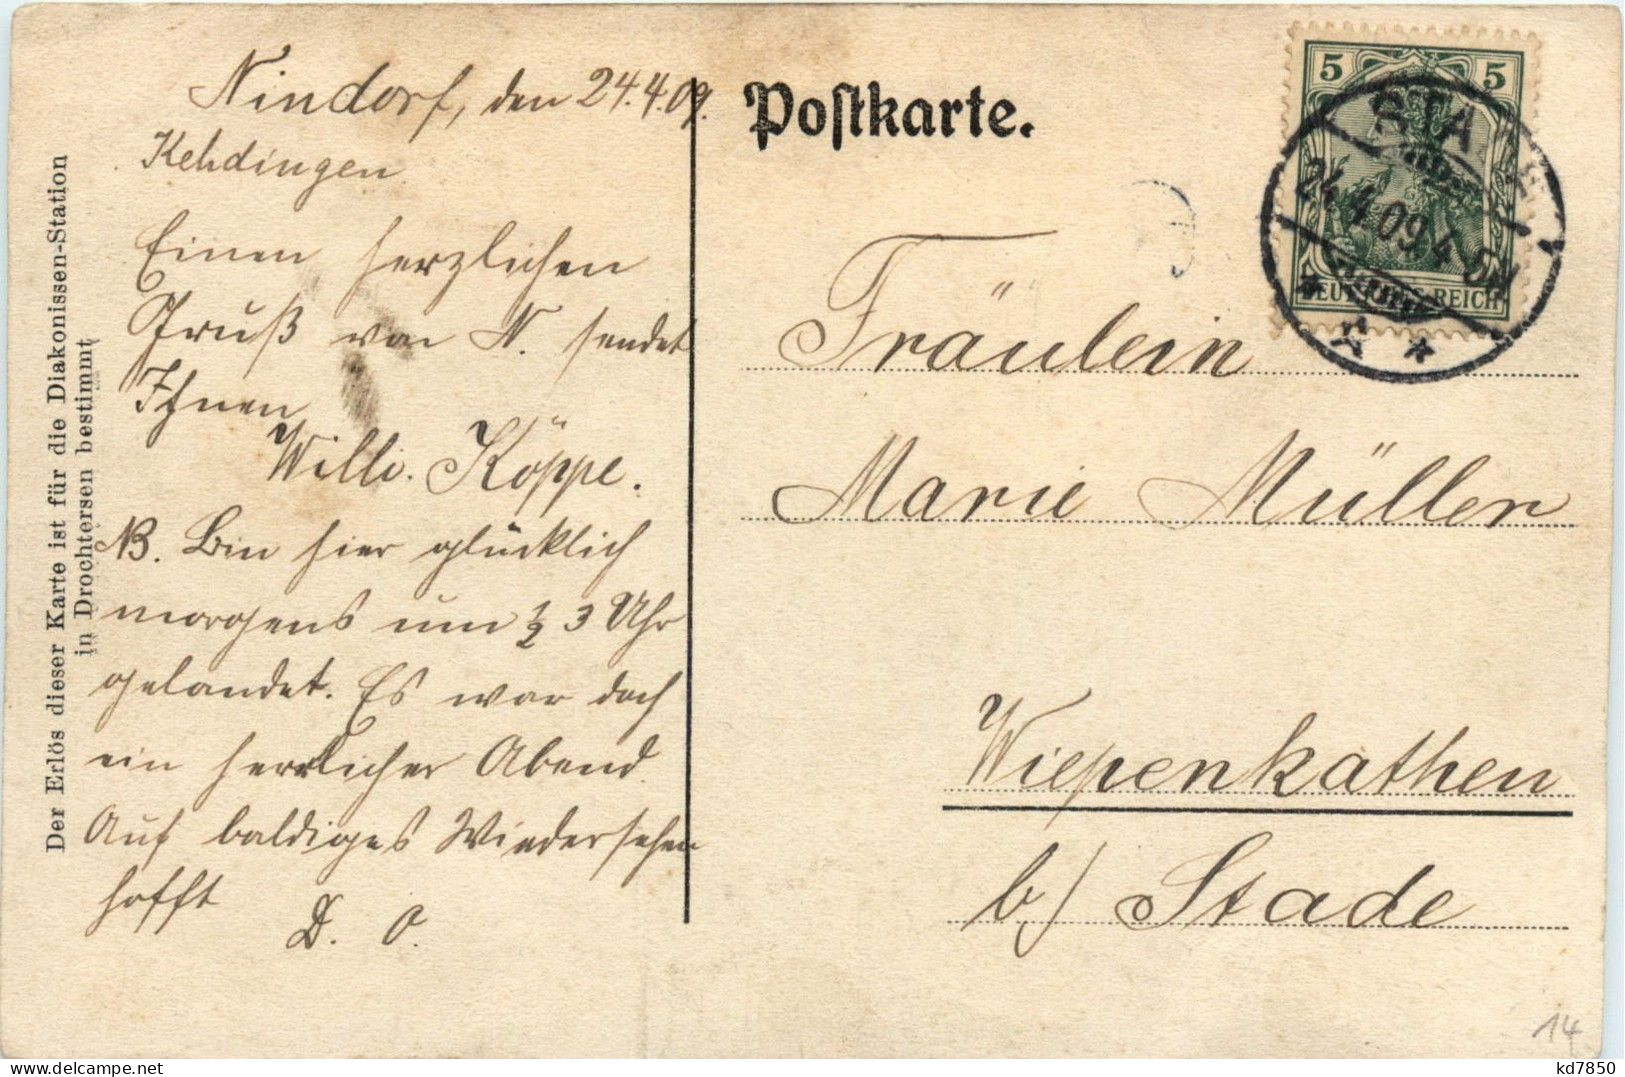 Nindorf, den 24.4.09.
Kehdingen
Einen herzlichen
Gruß von N. sendet
Ihnen
Willi. Köppe.
NB. Bin hier glücklich
morgens um ½ 3 Uhr
gelandet. Es war doch
ein herrlicher Abend.
Auf baldiges Wiedersehen
hofft
D. O.
Der Erlös dieser Karte ist für die Diakonissen-Station
in Drochtersen bestimmt
Postkarte.
5 5
DEUTSCHES REICH
STADE
24.4.09.4-5N
Fräulein
Marie Müller
Wiepenkathen
b/ Stade
14
www.delcampe.net
kd7850